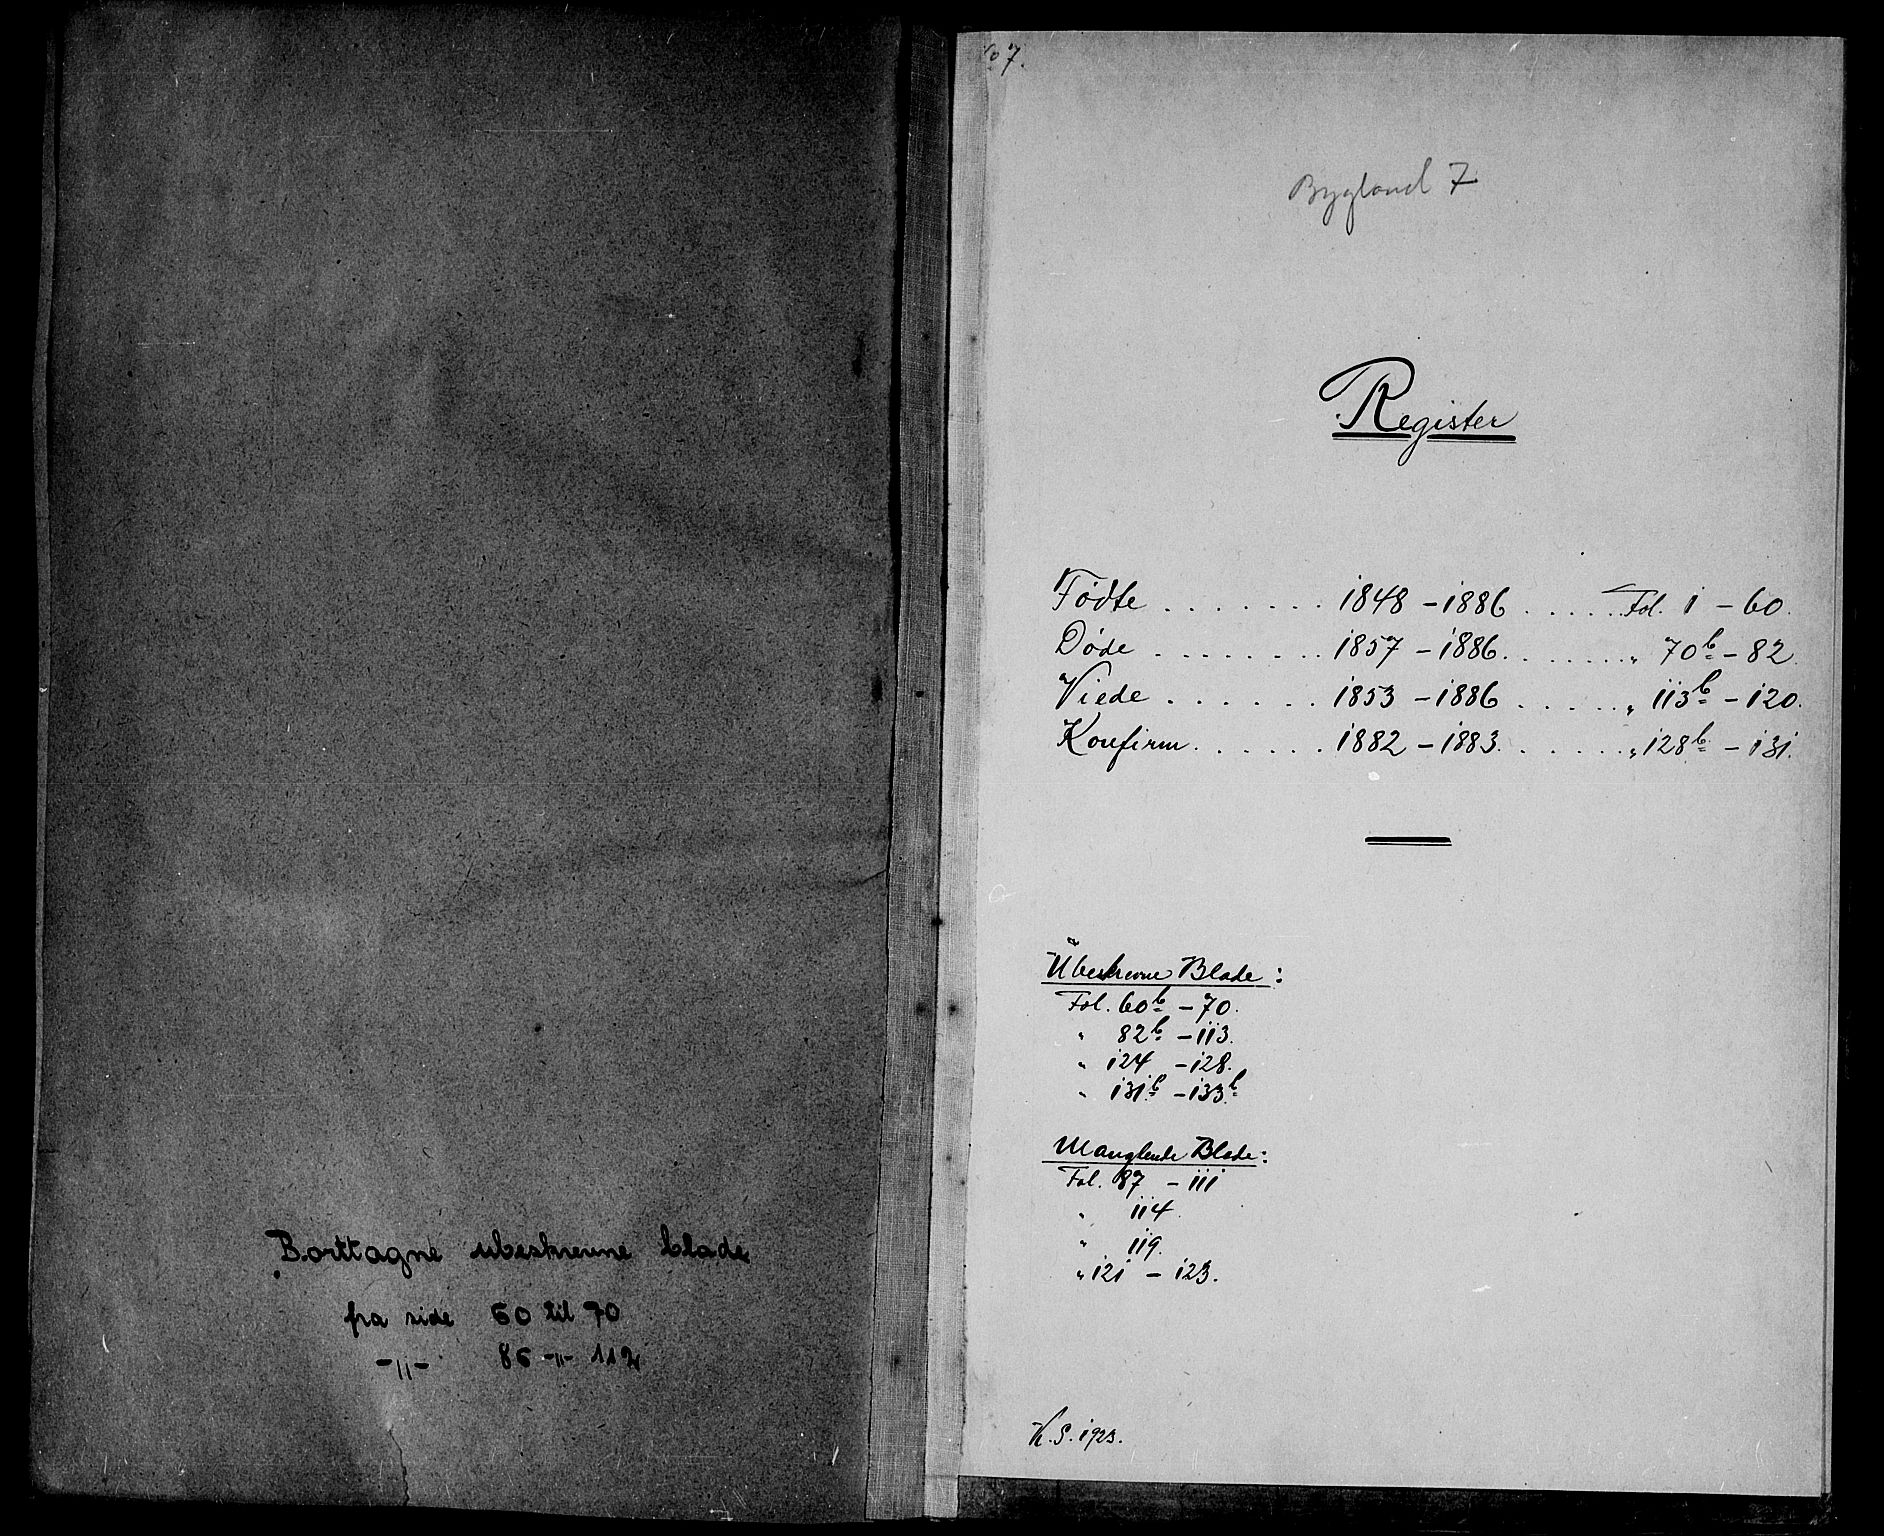 Borttagne ubeskrevne blade
fra side 60 til 70
-„- 86 -„- 112
No 7.
Bygland 7
Register
Fødte . . . . . . . 1848 - 1886 . . . . . Fol. 1 - 60.
Døde . . . . . . . . 1857 - 1886 . . . . . . . „ 70b - 82.
Viede . . . . . . 1853 - 1886 . . . . . „ 113b - 120.
Konfirm. . . . . . . 1882 - 1883. . . . . . „ 128b - 131.
Ubeskrevne Blade:
Fol. 60b - 70.
„ 82b - 113.
„ 124 - 128.
„ 131b - 133b
Manglende Blade:
Fol. 87 - 111
„ 114.
„ 119.
„ 121 - 123.
K. S. 1923.